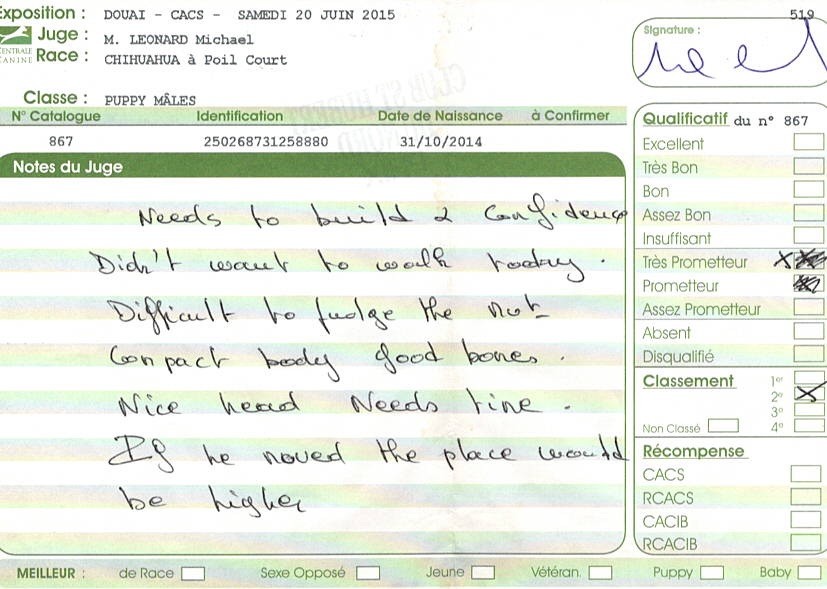 Exposition : DOUAI - CACS - SAMEDI 20 JUIN 2015
519
Juge : M. LEONARD Michael
Signature :
CENTRALE CANINE
Race : CHIHUAHUA à Poil Court
Classe : PUPPY MÂLES
N° Catalogue Identification Date de Naissance à Confirmer
867 250268731258880 31/10/2014
Notes du Juge
Needs to build a confidence
Didn't want to walk today.
Difficult to judge the
Compact body good bones.
Nice head Needs time.
If he moved the place would
be higher
Qualificatif du n° 867
Excellent
Très Bon
Bon
Assez Bon
Insuffisant
Très Prometteur X
Prometteur
Assez Prometteur
Absent
Disqualifié
Classement 1er
2e X
3e
Non Classé 4e
Récompense
CACS
RCACS
CACIB
RCACIB
MEILLEUR : de Race Sexe Opposé Jeune Vétéran. Puppy Baby